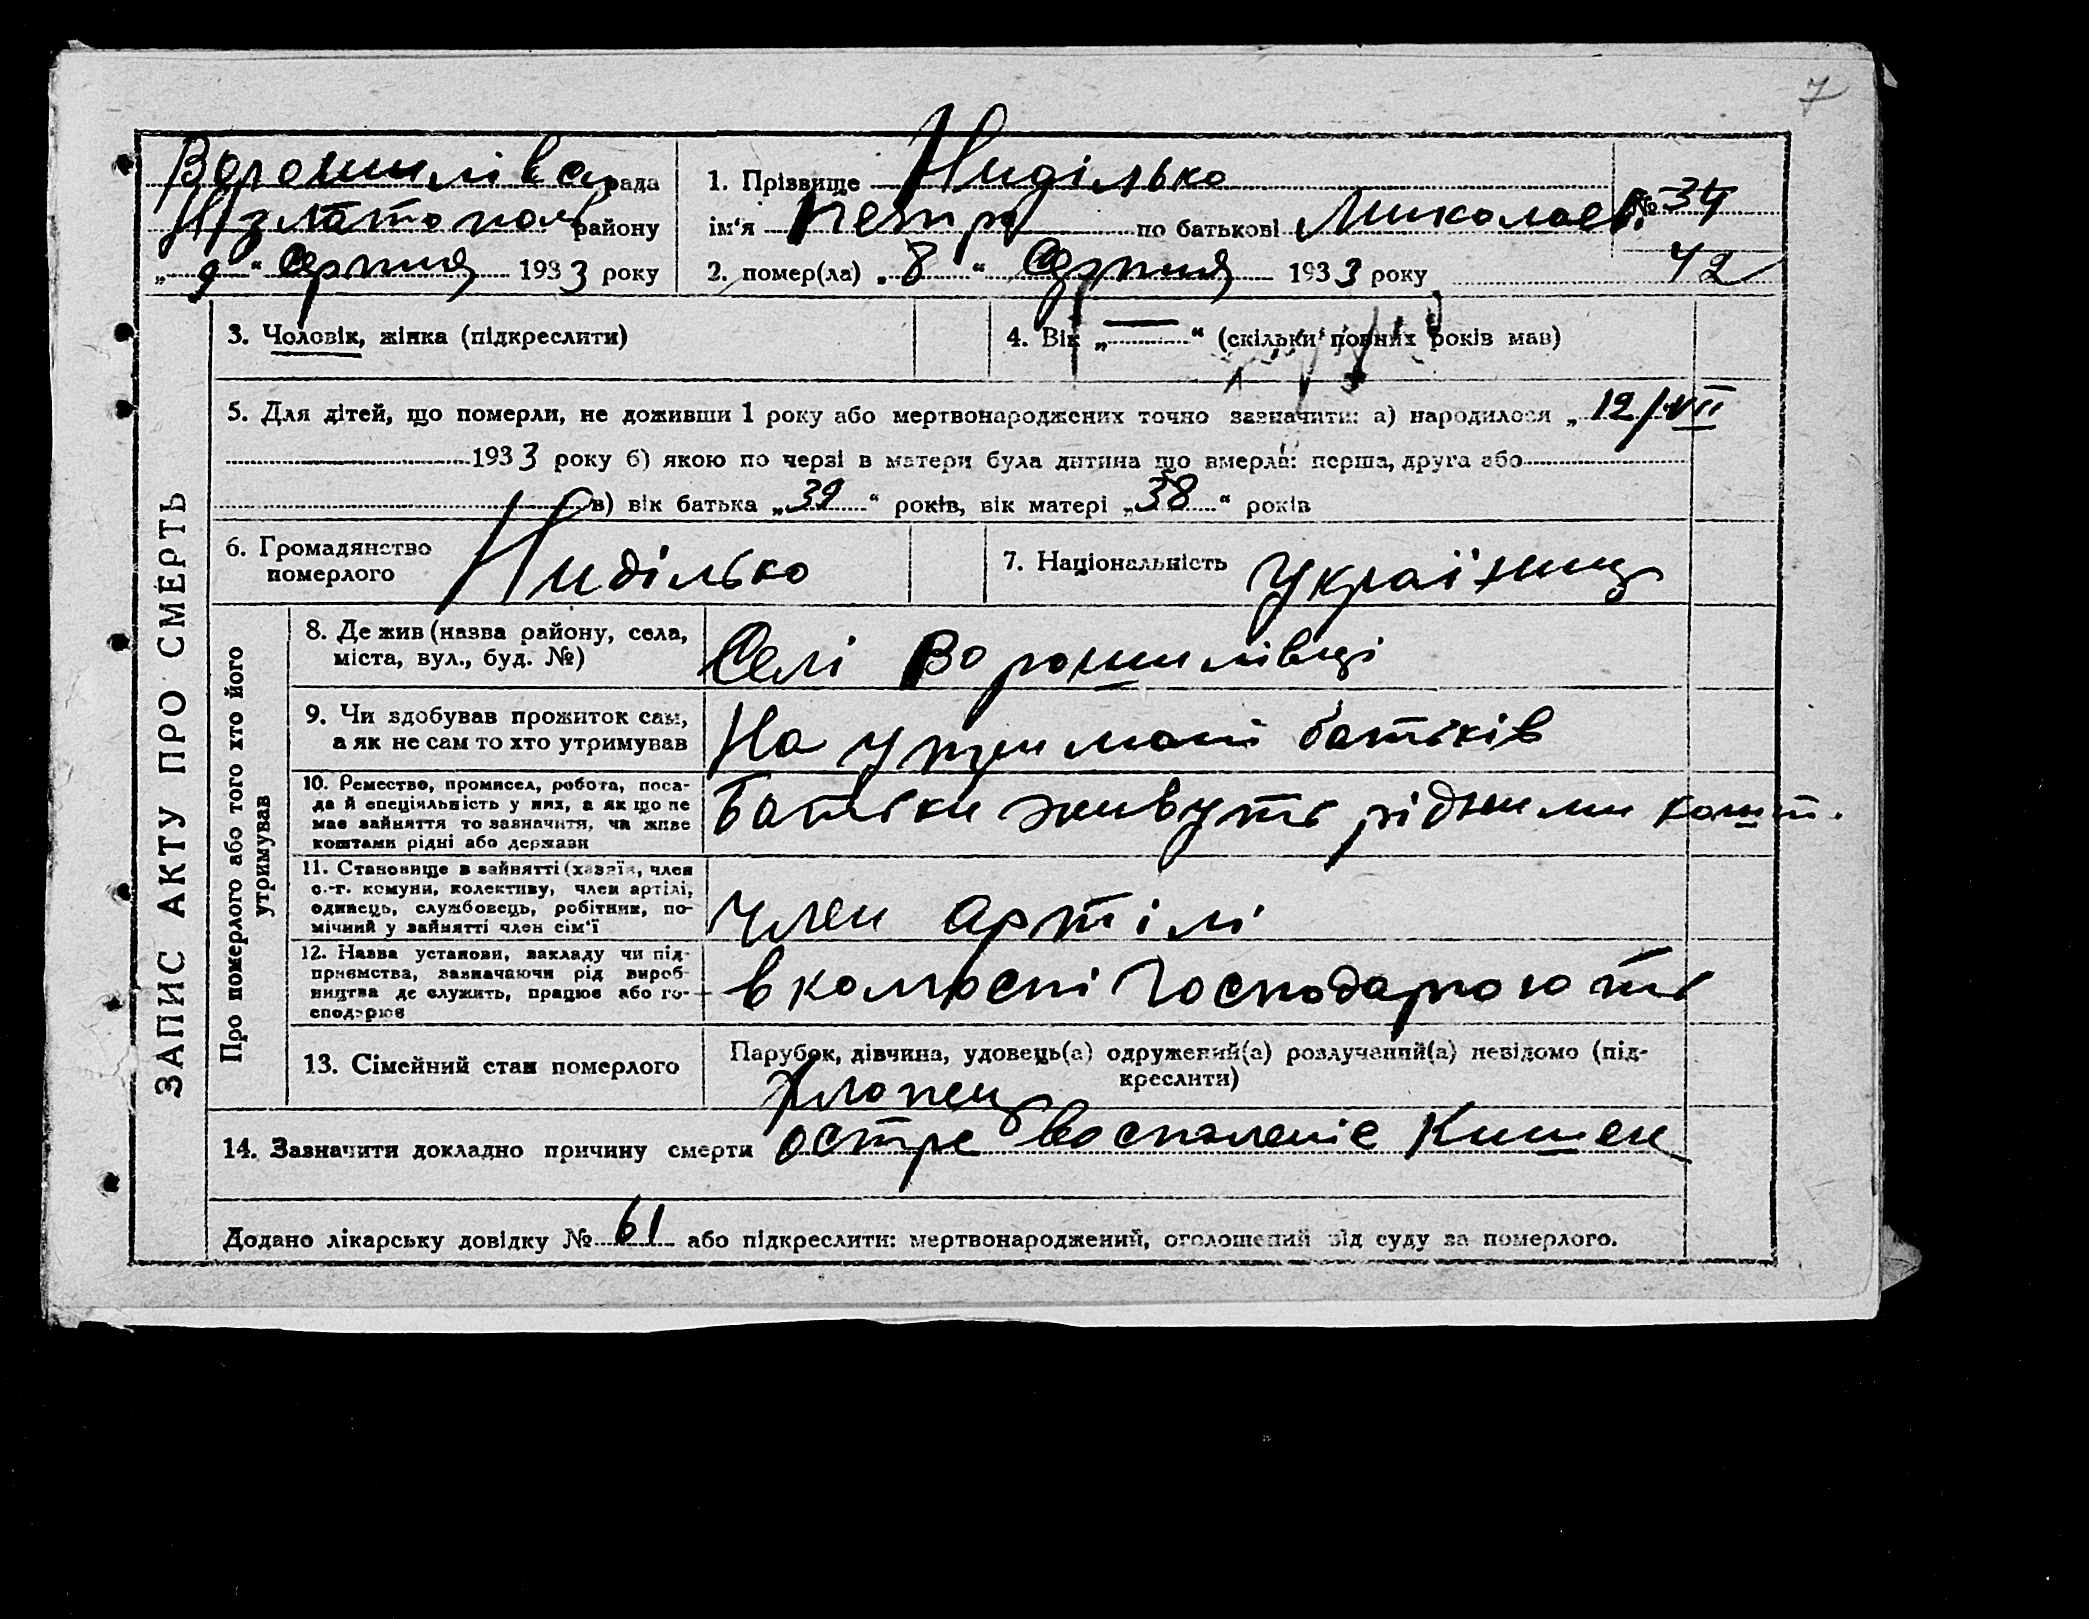 7
Ворошилівск рада
Н Златополь району
„ 9 “ Серпня 1933 року
1. Прізвище Ниділько
ім'я Петро по батькові Миколаєв.
№ 34
2. помер(ла) „ 8 “ Серпня 1933 року
42
ЗАПИС АКТУ ПРО СМЕРТЬ
3. Чоловік, жінка (підкреслити)
4. Вік „ — “ (скільки повних років мав)
5. Для дітей, що померли, не доживши 1 року або мертвонароджених точно зазначити: а) народилося „ 12/VII
1933 року б) якою по черзі в матери була дитина що вмерла: перша, друга або
в) вік батька „ 39 “ років, вік матері „ 38 “ років
6. Громадянство
померлого
Ниділько
7. Національність Українец
Про померлого або того хто його
утримував
8. Де жив (назва району, села,
міста, вул., буд. №)
Селі Ворошилівці
9. Чи здобував прожиток сам,
а як не сам то хто утримував
На утримані батьків
10. Ремество, промисел, робота, поса-
да й спеціяльність у них, а як що не
має зайняття то зазначити, чи живе
коштами рідні або держави
Батьки живуть рідними кошт.
11. Становище в зайнятті (хазяїн, член
с.-г. комуни, колективу, член артілі,
одинець, службовець, робітник, по-
мічний у зайнятті член сім'ї
Член артілі
12. Назва установи, закладу чи під-
приємства, зазначаючи рід вироб-
ництва де служить, працює або го-
сподарює
в колгоспі Господарюють
13. Сімейний стан померлого
Парубок, дівчина, удовець(а) одружений(а) розлучений(а) невідомо (під-
креслити)
Хлопец
14. Зазначити докладно причину смерти остре воспаленіе Кишек
Додано лікарську довідку № 61 або підкреслити: мертвонароджений, оголошений від суду за померлого.